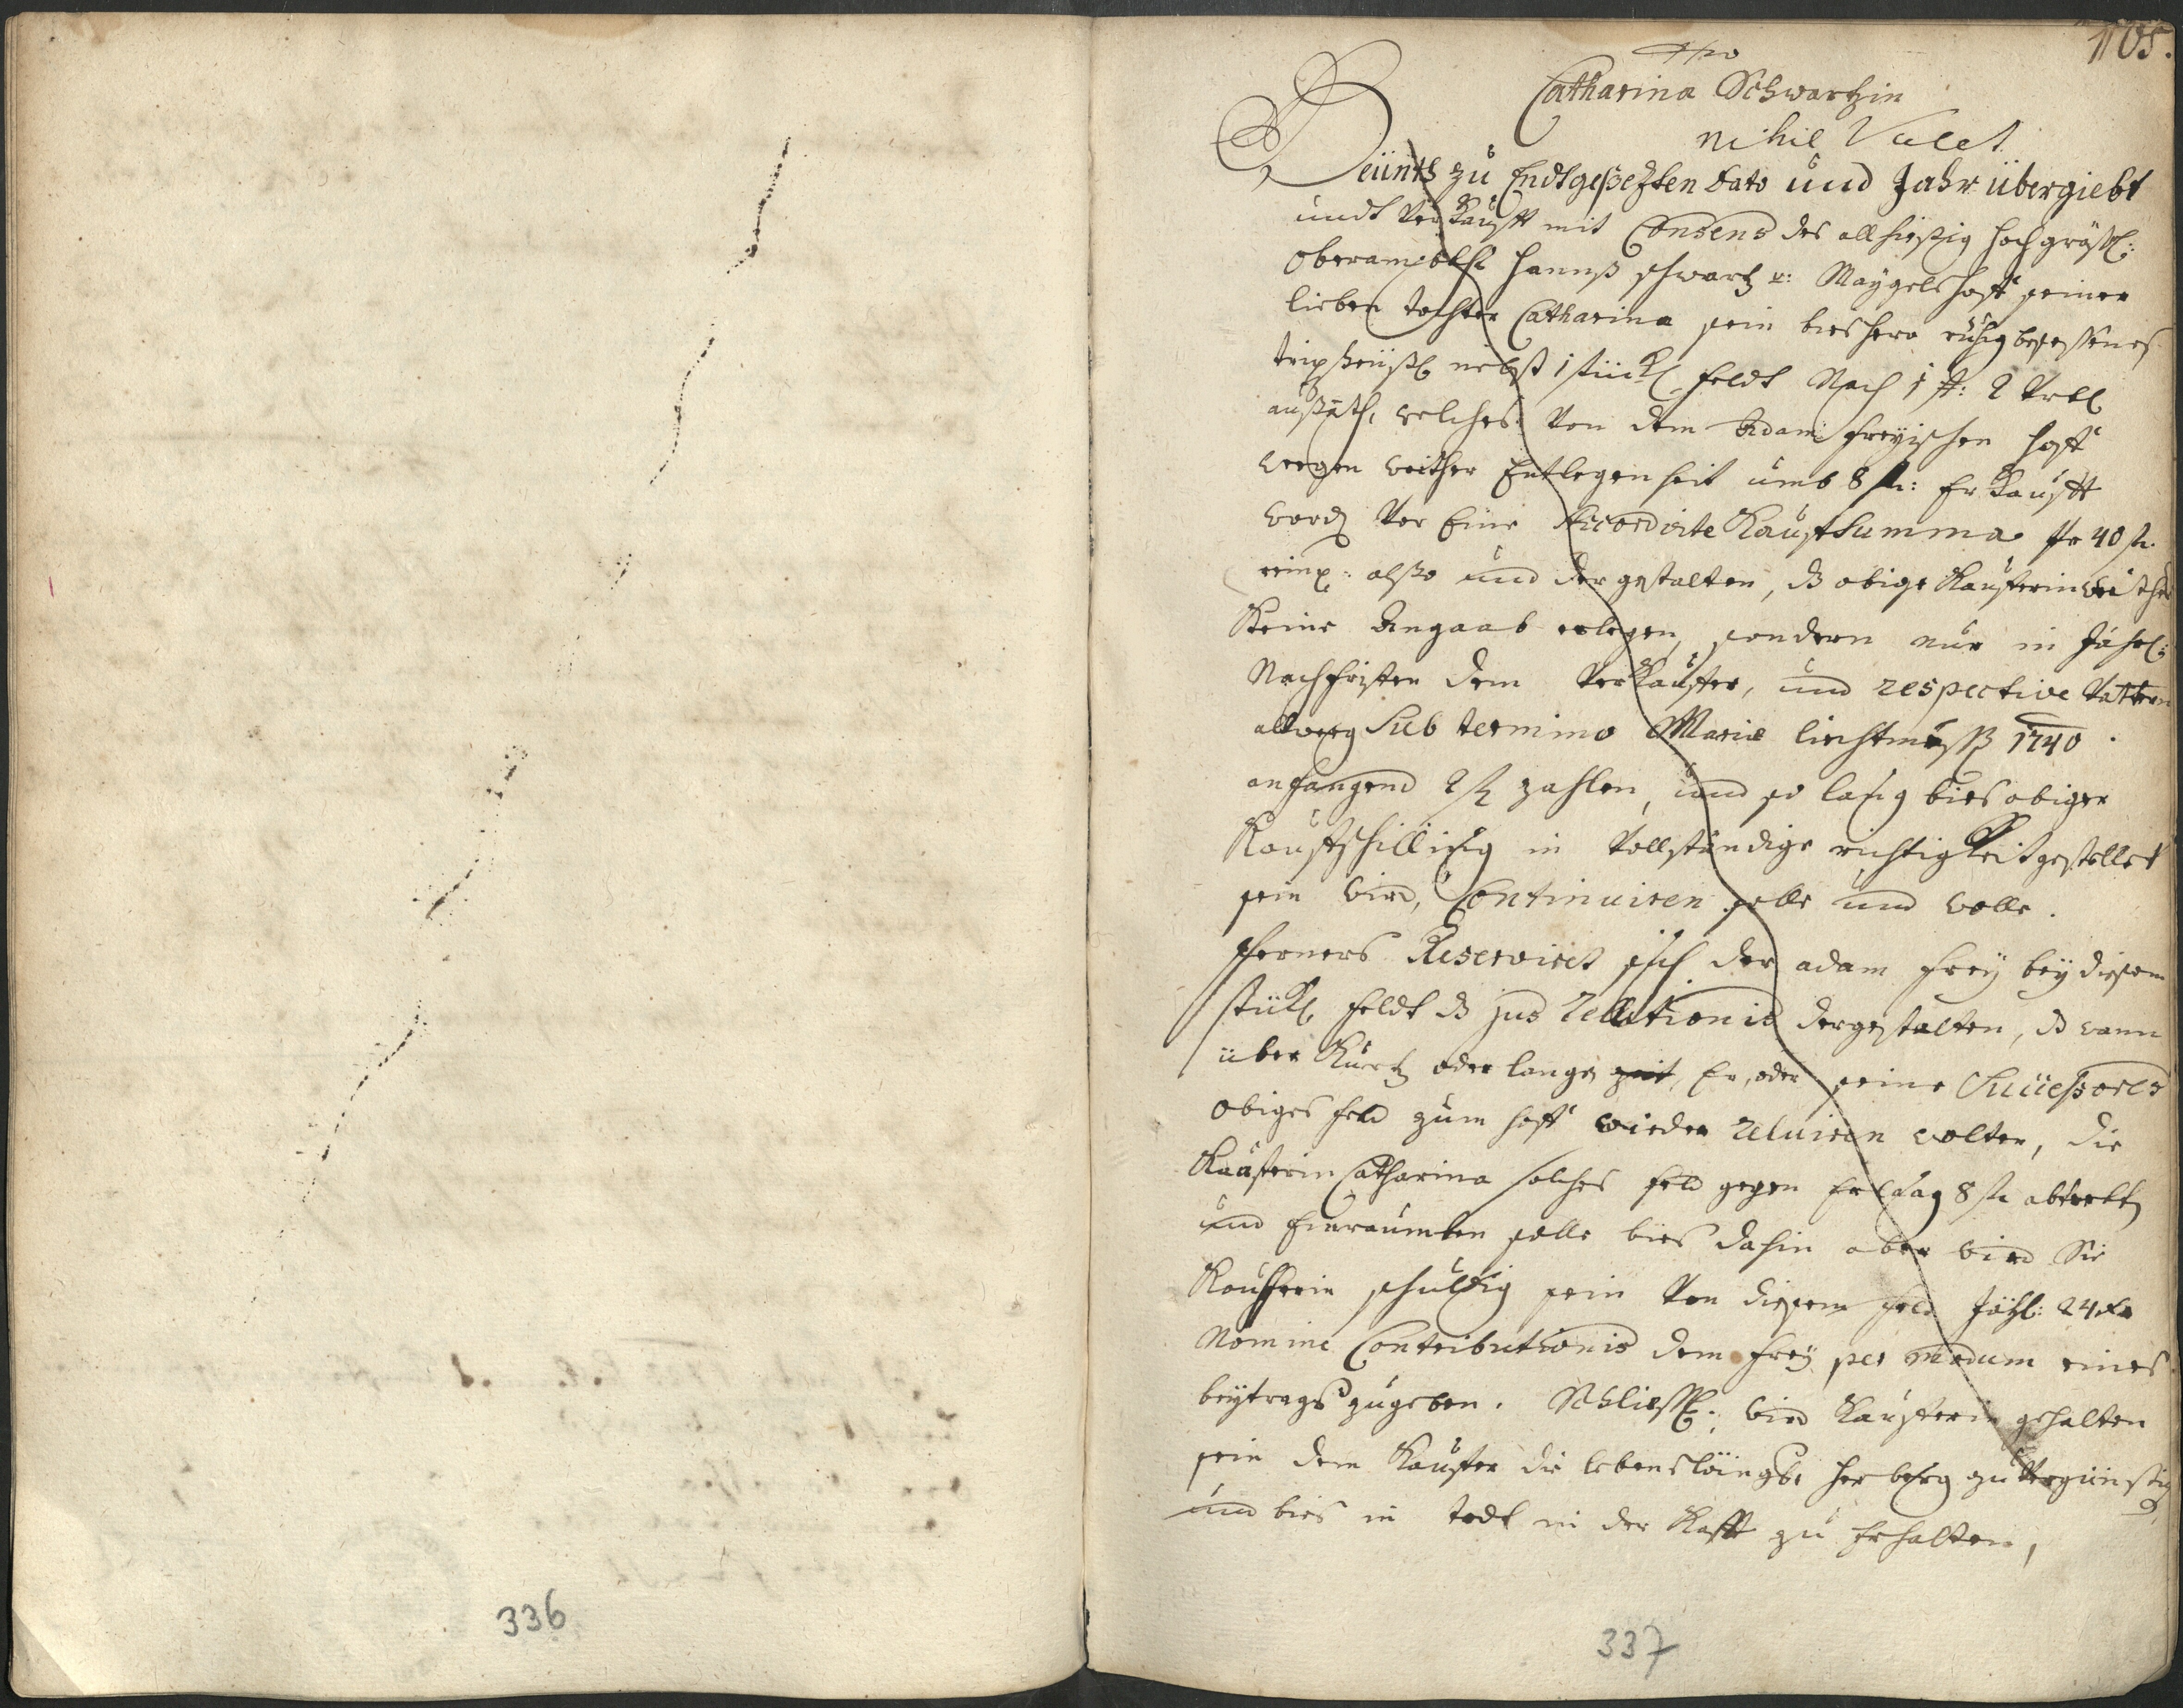 105.
Pro
Catharina Schwartzin
Nihil Valet
Heünt zu Endtgesezten dato und Jahr übergiebt
undt verkaufft mit Consens des allhießig hochgräffl:
Oberambts Hannß schwartz v: Maygelshoff seiner
lieben tochter Catharina sein bieshero ruhig besessenes
nebst 1 stückl feldt Nach 1 2 Vrtl
welches von dem Adam freyischen hoff
weegen weither Entlegenheit umb 8 fl: Erkaufft
word vor Eine Accordirte Kaufsumma pr 40 fl.
rein: alßo und dergestalten, ds obige Kaufferin
Keine Angaab erlegen, sondern nur in Jährl:
Nachfristen dem Verkauffer, und respective Vattern
allweeg Sub termino Mariæ liechtmeß 1740.
anfangend 2 fl zahlen, und so lang bies obiger
Kaufschilling in vollständige richtigkeit gestellet
sein wird, Continuiren solle und wolle.
Ferners Reserviret sich der adam frey bey diesem
stükl feldt ds jus Relutionis dergestalten, ds wann
über Kurtz oder lange zeit, Er, oder seine Successores
obiges feld zum hoff wieder reluiren wolten, die
Kaufferin Catharina solches feld gegen Erlaag 8 fl abtretten
und Einraumben solle bies dahin aber wird Sie
Kaufferin schuldig sein von diesem feld Jährl: 24 xr
Nomine Contributionis dem frey per modum eines
beytrags zugeben. Schliessl: wird Kaufferin gehalten
sein dem Kauffer die lebenslängliche herberg zu Vergünstig
und bies in todt in der Kosst zu Erhalten,
336
337